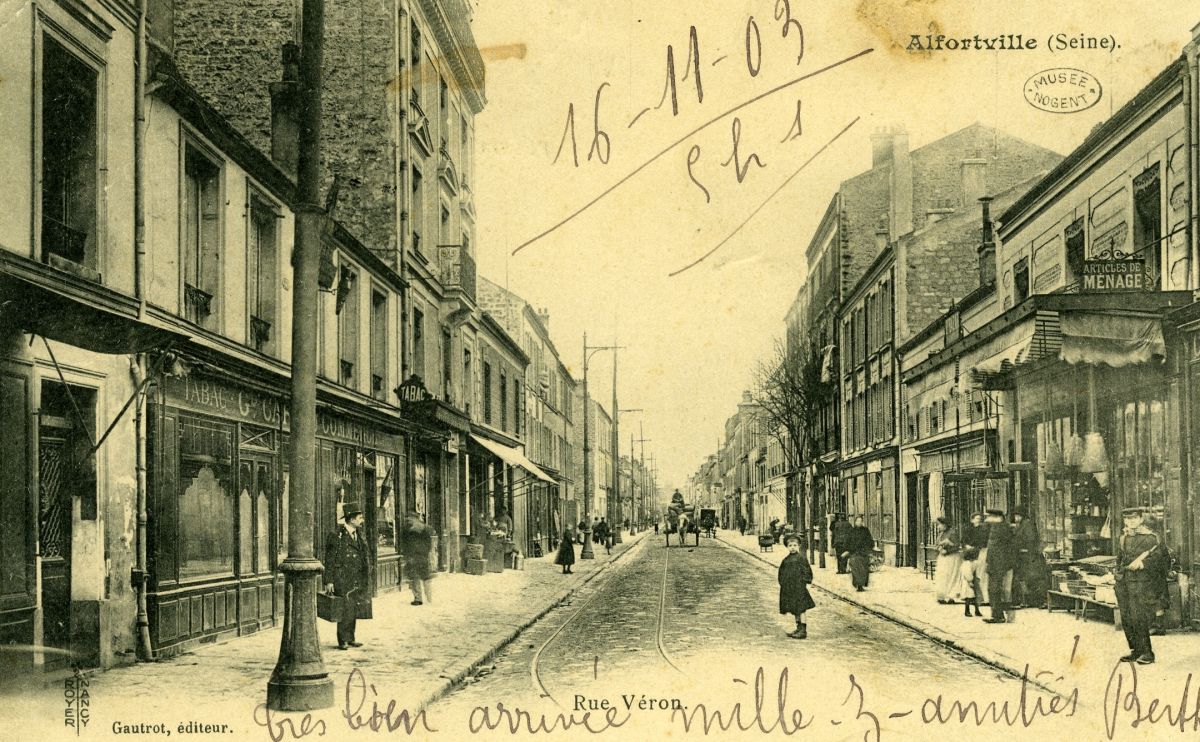 16-11-03
Alfortville (Seine).
MUSEE
NOGENT
5h
ARTICLES DE
MÉNAGE
TABAC
TABAC Gd CAFÉ
Rue Véron.
très bien arrivée mille amitiés
ROYER
NANCY
Gautrot, éditeur.